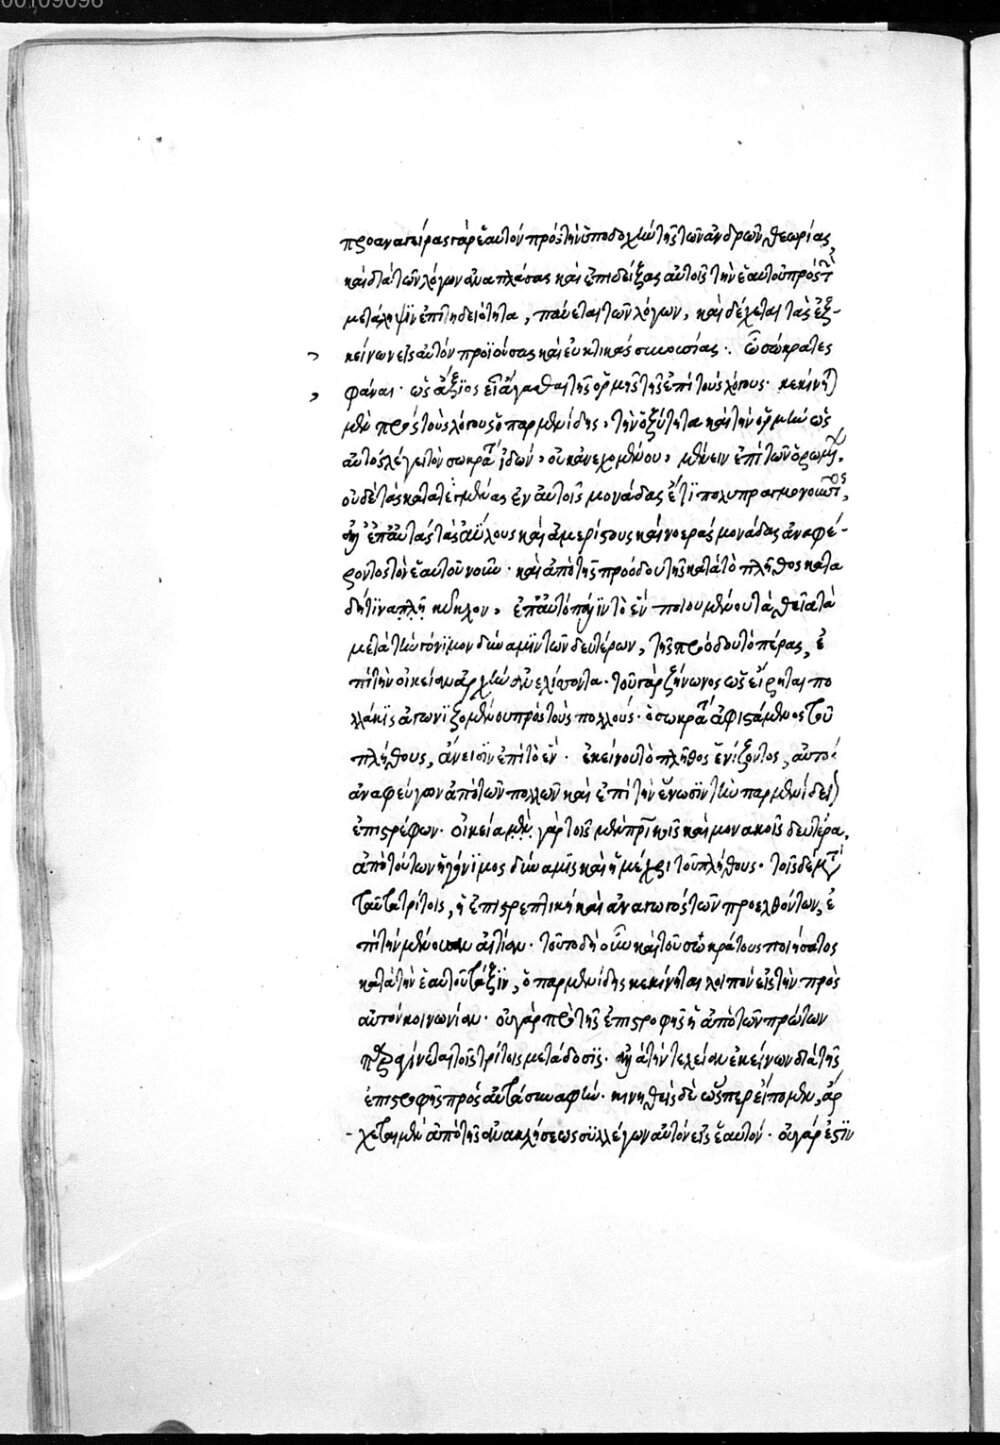 00109096
προανεγείρας γὰρ ἑαυτὸν πρὸς τὴν ὑποδοχὴν τῆς τῶν ἀνδρῶν θεωρίας,
καὶ διὰ τῶν λόγων ἀναπλάσας καὶ ἐπιδείξας αὐτοῖς τὴν ἑαυτοῦ πρὸς τὴν
μετάληψιν ἐπιτηδειότητα, παύεται τῶν λόγων, καὶ δέχεται τὰς ἐξ
κείνων εἰς αὐτὸν προϊούσας καὶ συνουσίας. ὦ σώκρατες
φάναι· ὡς ἄξιος εἶ ἄγασθαι τῆς ὁρμῆς τῆς ἐπὶ τοὺς λόγους· κεκίνηται
μὲν πρὸς τοὺς λόγους ὁ παρμενίδης, τὴν ὀξύτητα καὶ τὴν ὁρμὴν ὡς
αὐτὸς λέγει τὸν σωκράτη ἰδών, οὐκ ἀνεχομένου, μένειν ἐπὶ τῶν ὁρωμένων.
οὐδὲ τὰς κατατεταγμένας ἐν αὐτοῖς μονάδας ἔτι πολυπραγμονοῦντος,
ἀλλ' ἐπ' αὐτὰς τὰς ἀΰλους καὶ ἀμερίστους καὶ νοερὰς μονάδας ἀναφέ-
ροντος τὸν ἑαυτοῦ νοῦν· καὶ ἀπὸ τῆς προόδου τῆς κατὰ τὸ πλῆθος κατὰ
δή τινα κύκλον, ἐπ' αὐτὸ πάλιν τὸ ἓν ποιουμένου τὰ θεῖα τὰ
μετὰ τὴν γόνιμον δύναμιν τῶν δευτέρων, τῆς προόδου τὸ πέρας, ἐ
πὶ τὴν οἰκείαν ἀρχὴν ἀνελίσσοντα. τοῦ γὰρ ζήνωνος ὡς εἴρηται πο
λλάκις ἀγωνιζομένου πρὸς τοὺς πολλούς· ὁ σωκράτης ἀφιστάμενος τοῦ
πλήθους, ἄνεισιν ἐπὶ τὸ ἕν. ἐκείνου τὸ πλῆθος ἑνίζοντος, αὐτὸς
ἀναφεύγων ἀπὸ τῶν πολλῶν καὶ ἐπὶ τὴν ἕνωσιν τὴν παρμενίδειον
ἐπιστρέφων. οἰκεῖα μὲν γὰρ τοῖς μὲν πρώτοις καὶ μοναχοῖς δευτέρα,
ἀπὸ τούτων ἡ γόνιμος δύναμις καὶ ἡ μέχρι τοῦ πλήθους. τοῖς δὲ μετὰ
ταῦτα τρίτοις, ἡ ἐπιστρεπτικὴ καὶ ἀναγωγὸς τῶν προελθόντων, ἐ
πὶ τὴν μένουσαν αἰτίαν. τοῦτο δὴ οὖν καὶ τοῦ σωκράτους ποιήσαντος
κατὰ τὴν ἑαυτοῦ τάξιν, ὁ παρμενίδης κεκίνηται λοιπὸν εἰς τὴν πρὸς
αὐτὸν κοινωνίαν. οὐ γὰρ πρὸ τῆς ἐπιστροφῆς ἡ ἀπὸ τῶν πρώτων
παραγίνεται τοῖς τρίτοις μετάδοσις. ἀλλὰ τὴν τελείαν ἐκείνων διὰ τῆς
ἐπιστροφῆς πρὸς αὐτὰ συναφήν. κινηθεὶς δὲ ὥσπερ εἴπομεν, ἄρ
χεται μὲν ἀπὸ τῆς ἀνακλήσεως συλλέγων αὐτὸν εἰς ἑαυτόν. οὐ γάρ ἐστιν